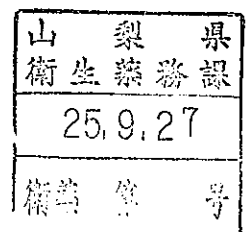 山梨県
衛生薬務課
25.9.27
衛薬第 号